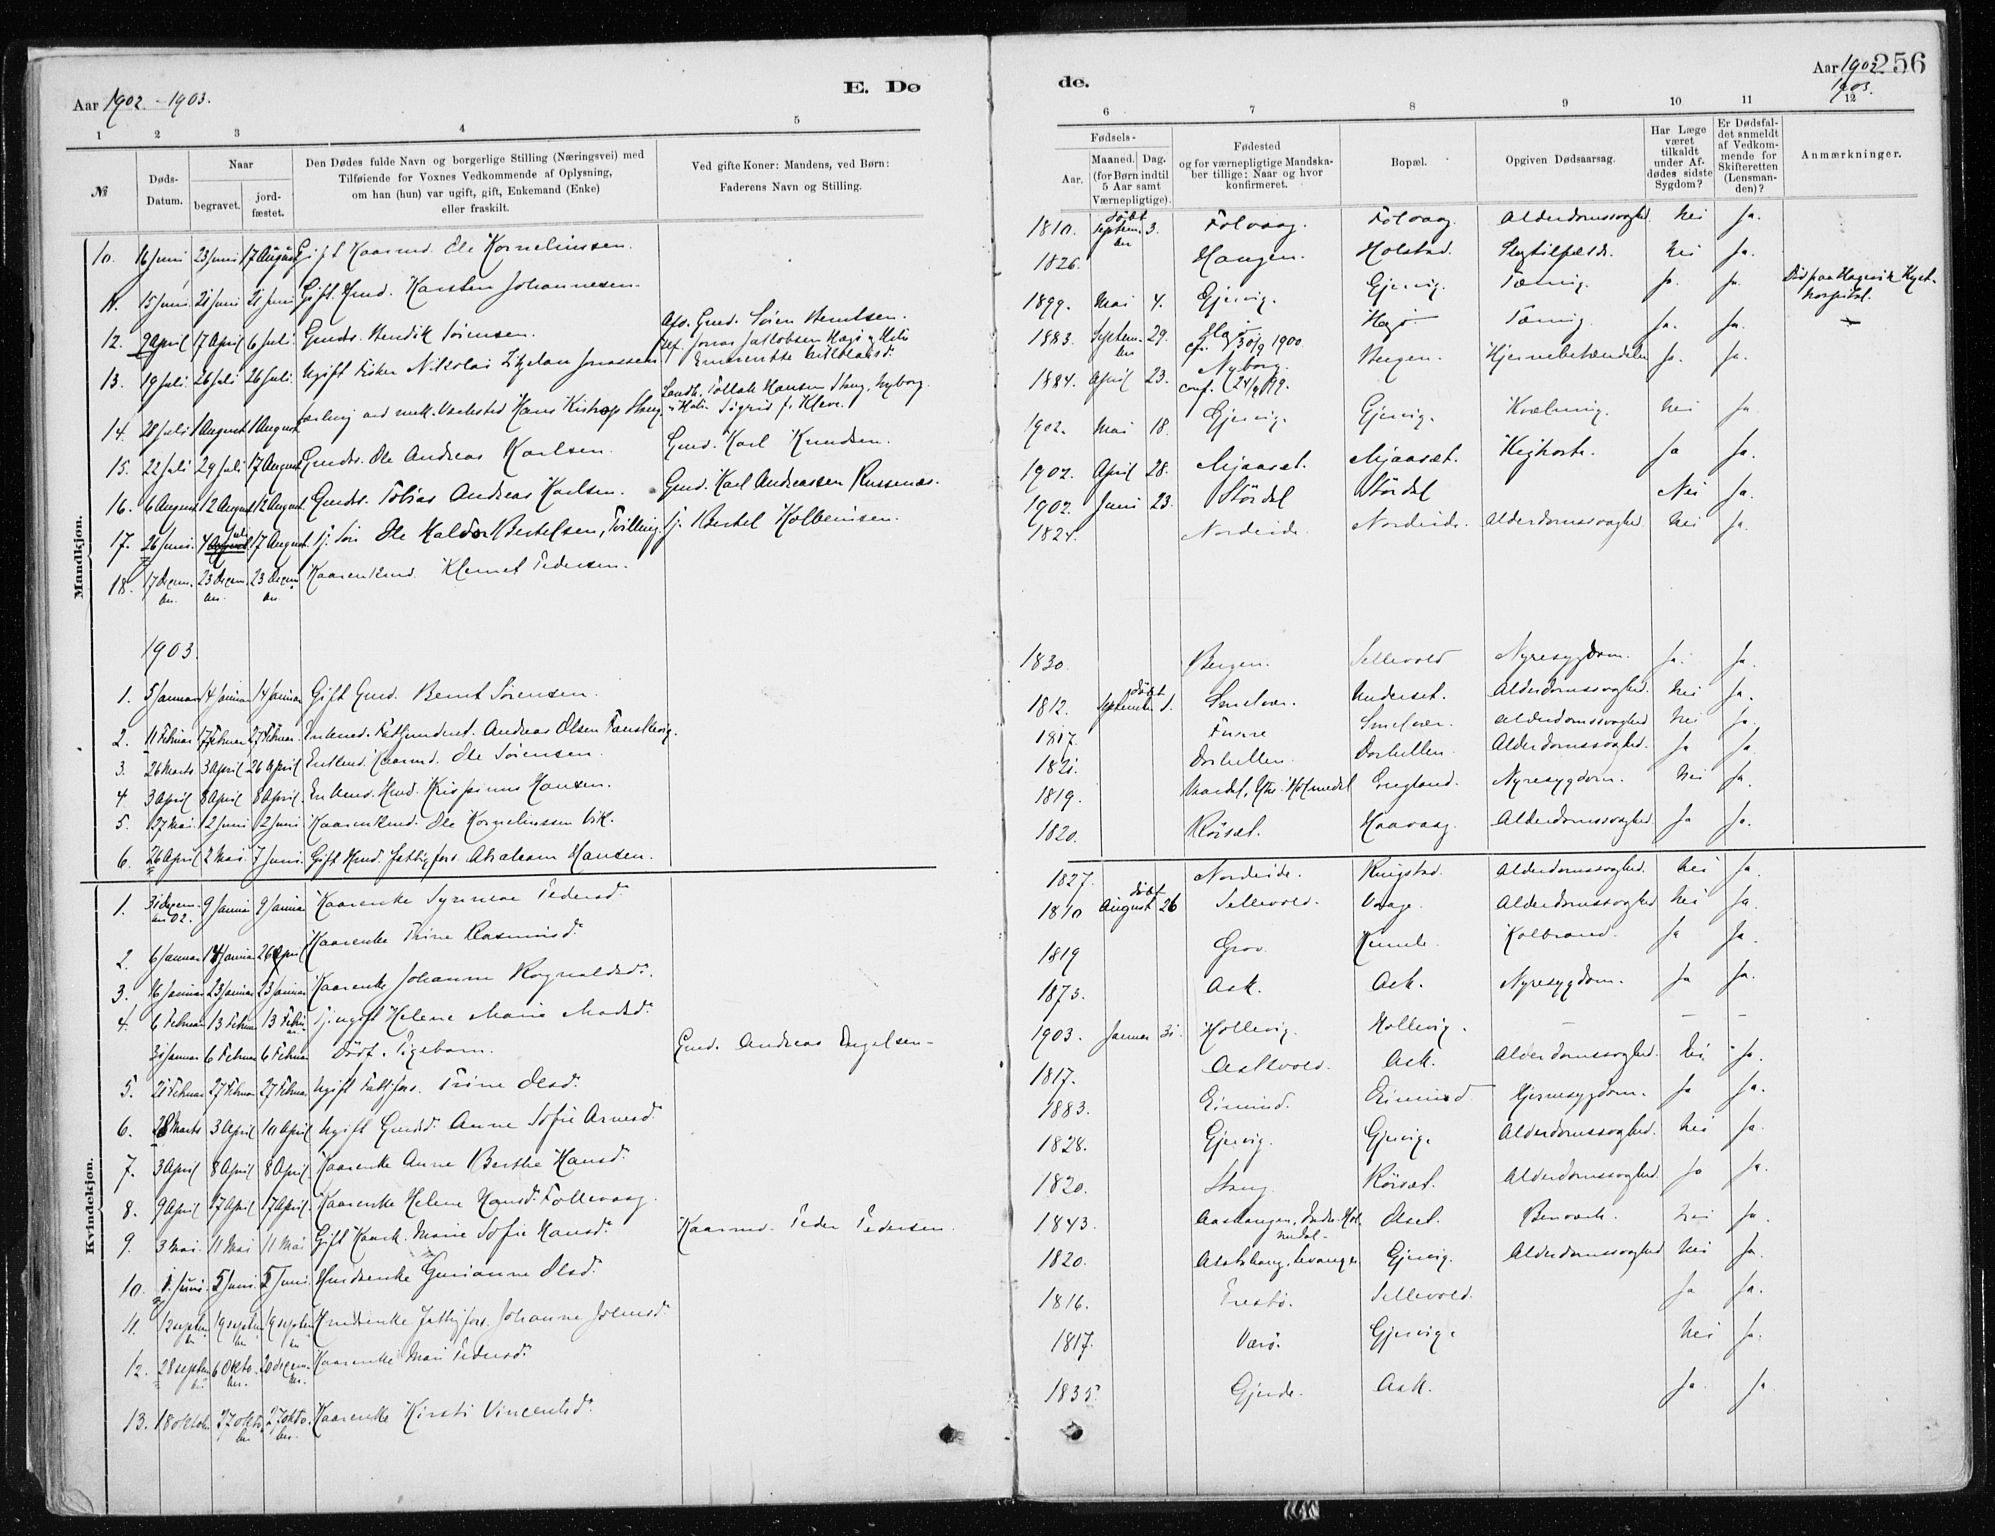 Aar 1902-1903.
E. Dø
de.
Aar 1902
1903.
256
1 2 3 4 5
6 7 8 9 10 11 12
№
Døds-Datum.
Naar
begravet.
jord-fæstet.
Den Dødes fulde Navn og borgerlige Stilling (Næringsvei) med
Tilføiende for Voxnes Vedkommende af Oplysning,
om han (hun) var ugift, gift, Enkemand (Enke)
eller fraskilt.
Ved gifte Koner: Mandens, ved Børn:
Faderens Navn og Stilling.
Fødsels-
Aar.
Maaned. Dag.
(for Børn indtil
5 Aar samt
Værnepligtige).
Fødested
og for værnepligtige Mandska-
ber tillige: Naar og hvor
konfirmeret.
Bopæl.
Opgiven Dødsaarsag.
Har Læge
været
tilkaldt
under Af-
dødes sidste
Sygdom?
Er Dødsfal-
det anmeldt
af Vedkom-
mende for
Skifteretten
(Lensman-
den)?
Anmærkninger.
Mandkjøn.
10. 16 Juni 23 Juni 17 August Gift Kaarmd. Ole Kornelinssen. 1810. September døbt 3. Folvaag. Folvaag. Alderdomssvaghed Nei Ja.
11. 15 Juni 21 Juni 21 Juni Gift Hmd. Karsten Johannesen. 1826. Haugen. Holstad. Slagtilfælde. Nei Ja.
12. 9 April 17 April 6 Juli Gmds. Hendik Sørensen. Afd. Gmd. Søren Berntsen. 1899. Mai 4. Gjervig. Gjervig. Tæring. Ja. Ja. Død paa Hagevik Kyst-hospital.
13. 19 Juli 26 Juli 26 Juli Ugift Fisker Nikolai Jonassen 1883. September 29. Hagø cf. 30/9 1900. Hagø Tæring. Ja. Ja.
Lærling ved mek. Værksted Hans Streng. Landh. Tollak Hansen Streng, Nyborg. 1884. April 23. Nyborg. conf. 24/9 99. Bergen. Hjernebetændelse Ja. Ja.
14. 28 Juli 1 August 1 August
15. 22 Juli 29 Juli 17 August Gmds. Ole Andreas Karlsen. Gmd. Karl Knudsen. 1902. Mai 18. Gjervig. Gjervig. Kvælning. Nei Ja
16. 6 August 12 August 12 August Gmds. Tobias Andreas Karlsen. Gmd. Karl Andreassen Russenæs. 1902. April 28. Mjaaset. Mjaaset. Kighoste. Ja Ja.
17. 26 Juni 4 Juli 17 August Tj. Søn Ole Haldor Bertelsen, Tvilling. Tj. Bertel Kolbeinsen. 1902. Juni 23. Stördal Stördal Nei Ja.
18. 17 December. 23 December. 23 December Kaarenkmd. Klemet Pedersen. 1824. Nordeide. Nordeide. Alderdomssvaghed Nei Ja.
1903.
1. 5 Januar 14 Januar 14 Januar Gift Gmd. Bernt Sørensen. 1830. Bergen. Sellevold Nyresygdom. Ja. Ja.
2. 11 Februar 17 Februar 27 Februar. Enkmd. Fattigunderst. Andreas Olsen 1812. September døbt 1. Smelvær. Underset. Alderdomssvaghed. Nei Ja.
3. 26 Marts 3 April 26 April Enkmd. Kaarmd. Ole Sørensen. 1817. Furre Smelvær. Alderdomssvaghed Nei Ja.
4. 3 April 8 April 8 April. Enkmd. Hmd. Krispinus Hansen. 1821. Dorhellen. Dorhellen. Alderdomssvaghed. Ja Ja
5. 27 Mai 12 Juni 12 Juni Kaarenkmd. Ole Kornelinssen Vik. 1819. Holmedal England. Nyresygdom. Nei Ja.
6. 26 April 2 Mai. 7 Juni. Gift Hmd. fattigfors. Abraham Hansen. 1820. Rörset. Haavaag. Alderdomssvaghed Ja Ja.
Kvindekjøn.
1. 31 December 02. 9 Januar 9 Januar Kaarenke Syrense Pedersd. 1827. Nordeide. Ringstad. Alderdomssvaghed. Nei Ja.
2. 6 Januar 14 Januar 26 April Kaarenke Trine Rasmusd. 1810 August døbt 26 Sellevold. Vaage. Alderdomssvaghed Nei Ja.
3. 16 Januar 23 Januar 23 Januar Kaarenke Johanne Rognaldsd. 1819 Grov. Kumle. Kolbrand. Ja Ja.
4. 6 Februar 13 Februar 13 Februar Tj. ugift Helene Marie Madsd. 1873. Ask. Ask. Nyresygdom. Ja Ja.
31 Januar 6 Februar 6 Februar Dødf. Pigebarn. Gmd. Andreas Engelsen 1903. Januar 31. Hollevig. Hollevig. — — —
5. 21 Februar 27 Februar 27 Februar Ugift Fattfors. Trine Olsd. 1817. Askvold. Ask. Alderdomssvaghed. Nei Ja.
6. 28 Marts 3 April 10 April Ugift Gmdsd. Anne Sofie Arnesd. 1883. Eimind. Eimind. Hjernesygdom. Ja Ja.
7. 3 April 8 April 8 April. Kaarenke Anne Berthe Hansd. 1828. Gjervig. Gjervig. Alderdomssvaghed. Nei Ja.
8. 9 April 17 April 17 April. Kaarenke Helene Hansd. Follevaag. 1820. Streng Rörset. Alderdomssvaghed. Ja Ja.
9. 3 Mai. 11 Mai 11 Mai Gift Kaark. Marie Sofie Hansd. Kaarmd. Peder Pedersen. 1843. Indre Hol-medal. Olset. Benbrud. Nei Ja.
10. 1. Juni. 5 Juni. 5 Juni. Hmdsenke Gurianne Olsd. 1820. Gjervig. Alderdomssvaghed Nei Ja.
11. 12 september 19 september 19 september Hmdsenke Fattigfors. Johanne 1816. Sellevold. Ja Ja.
12. 28 september 6 Oktober. 20 december. Kaarenke Mari Pedersd. 1817. Værø. Gjervig. Nei Ja.
13. 18 oktober 27 oktober 27 oktober. Kaarenke Kirsti Vincentsd. 1835. Gjerde. Ask. Ja. Ja.